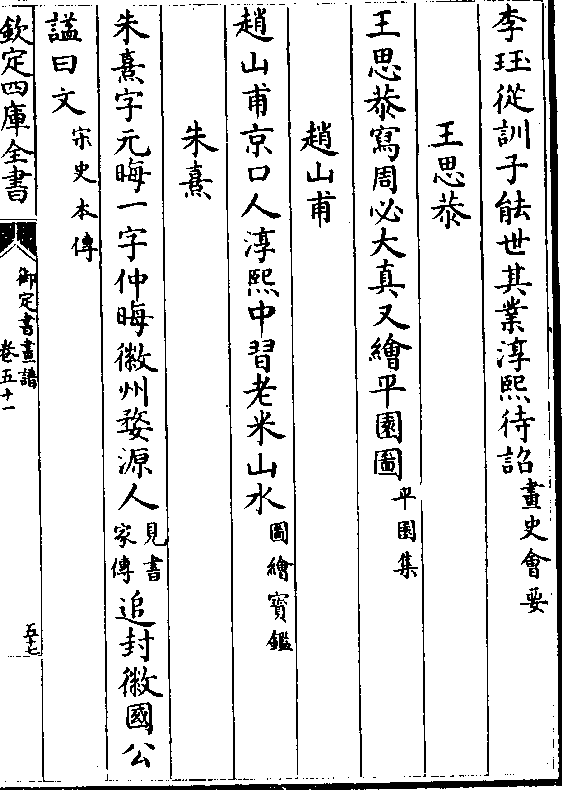 李珏從訓子能世其業淳熙待詔畫史會要
王思恭
王思恭寫周必大真又繪平園圖平園集
趙山甫
趙山甫京口人淳熙中習老米山水圖繪寶鑑
朱熹
朱熹字元晦一字仲晦徽州婺源人見書家傳追封徽國公
諡曰文宋史本傳
欽定四庫全書
御定書畫譜
卷五十一
五十七